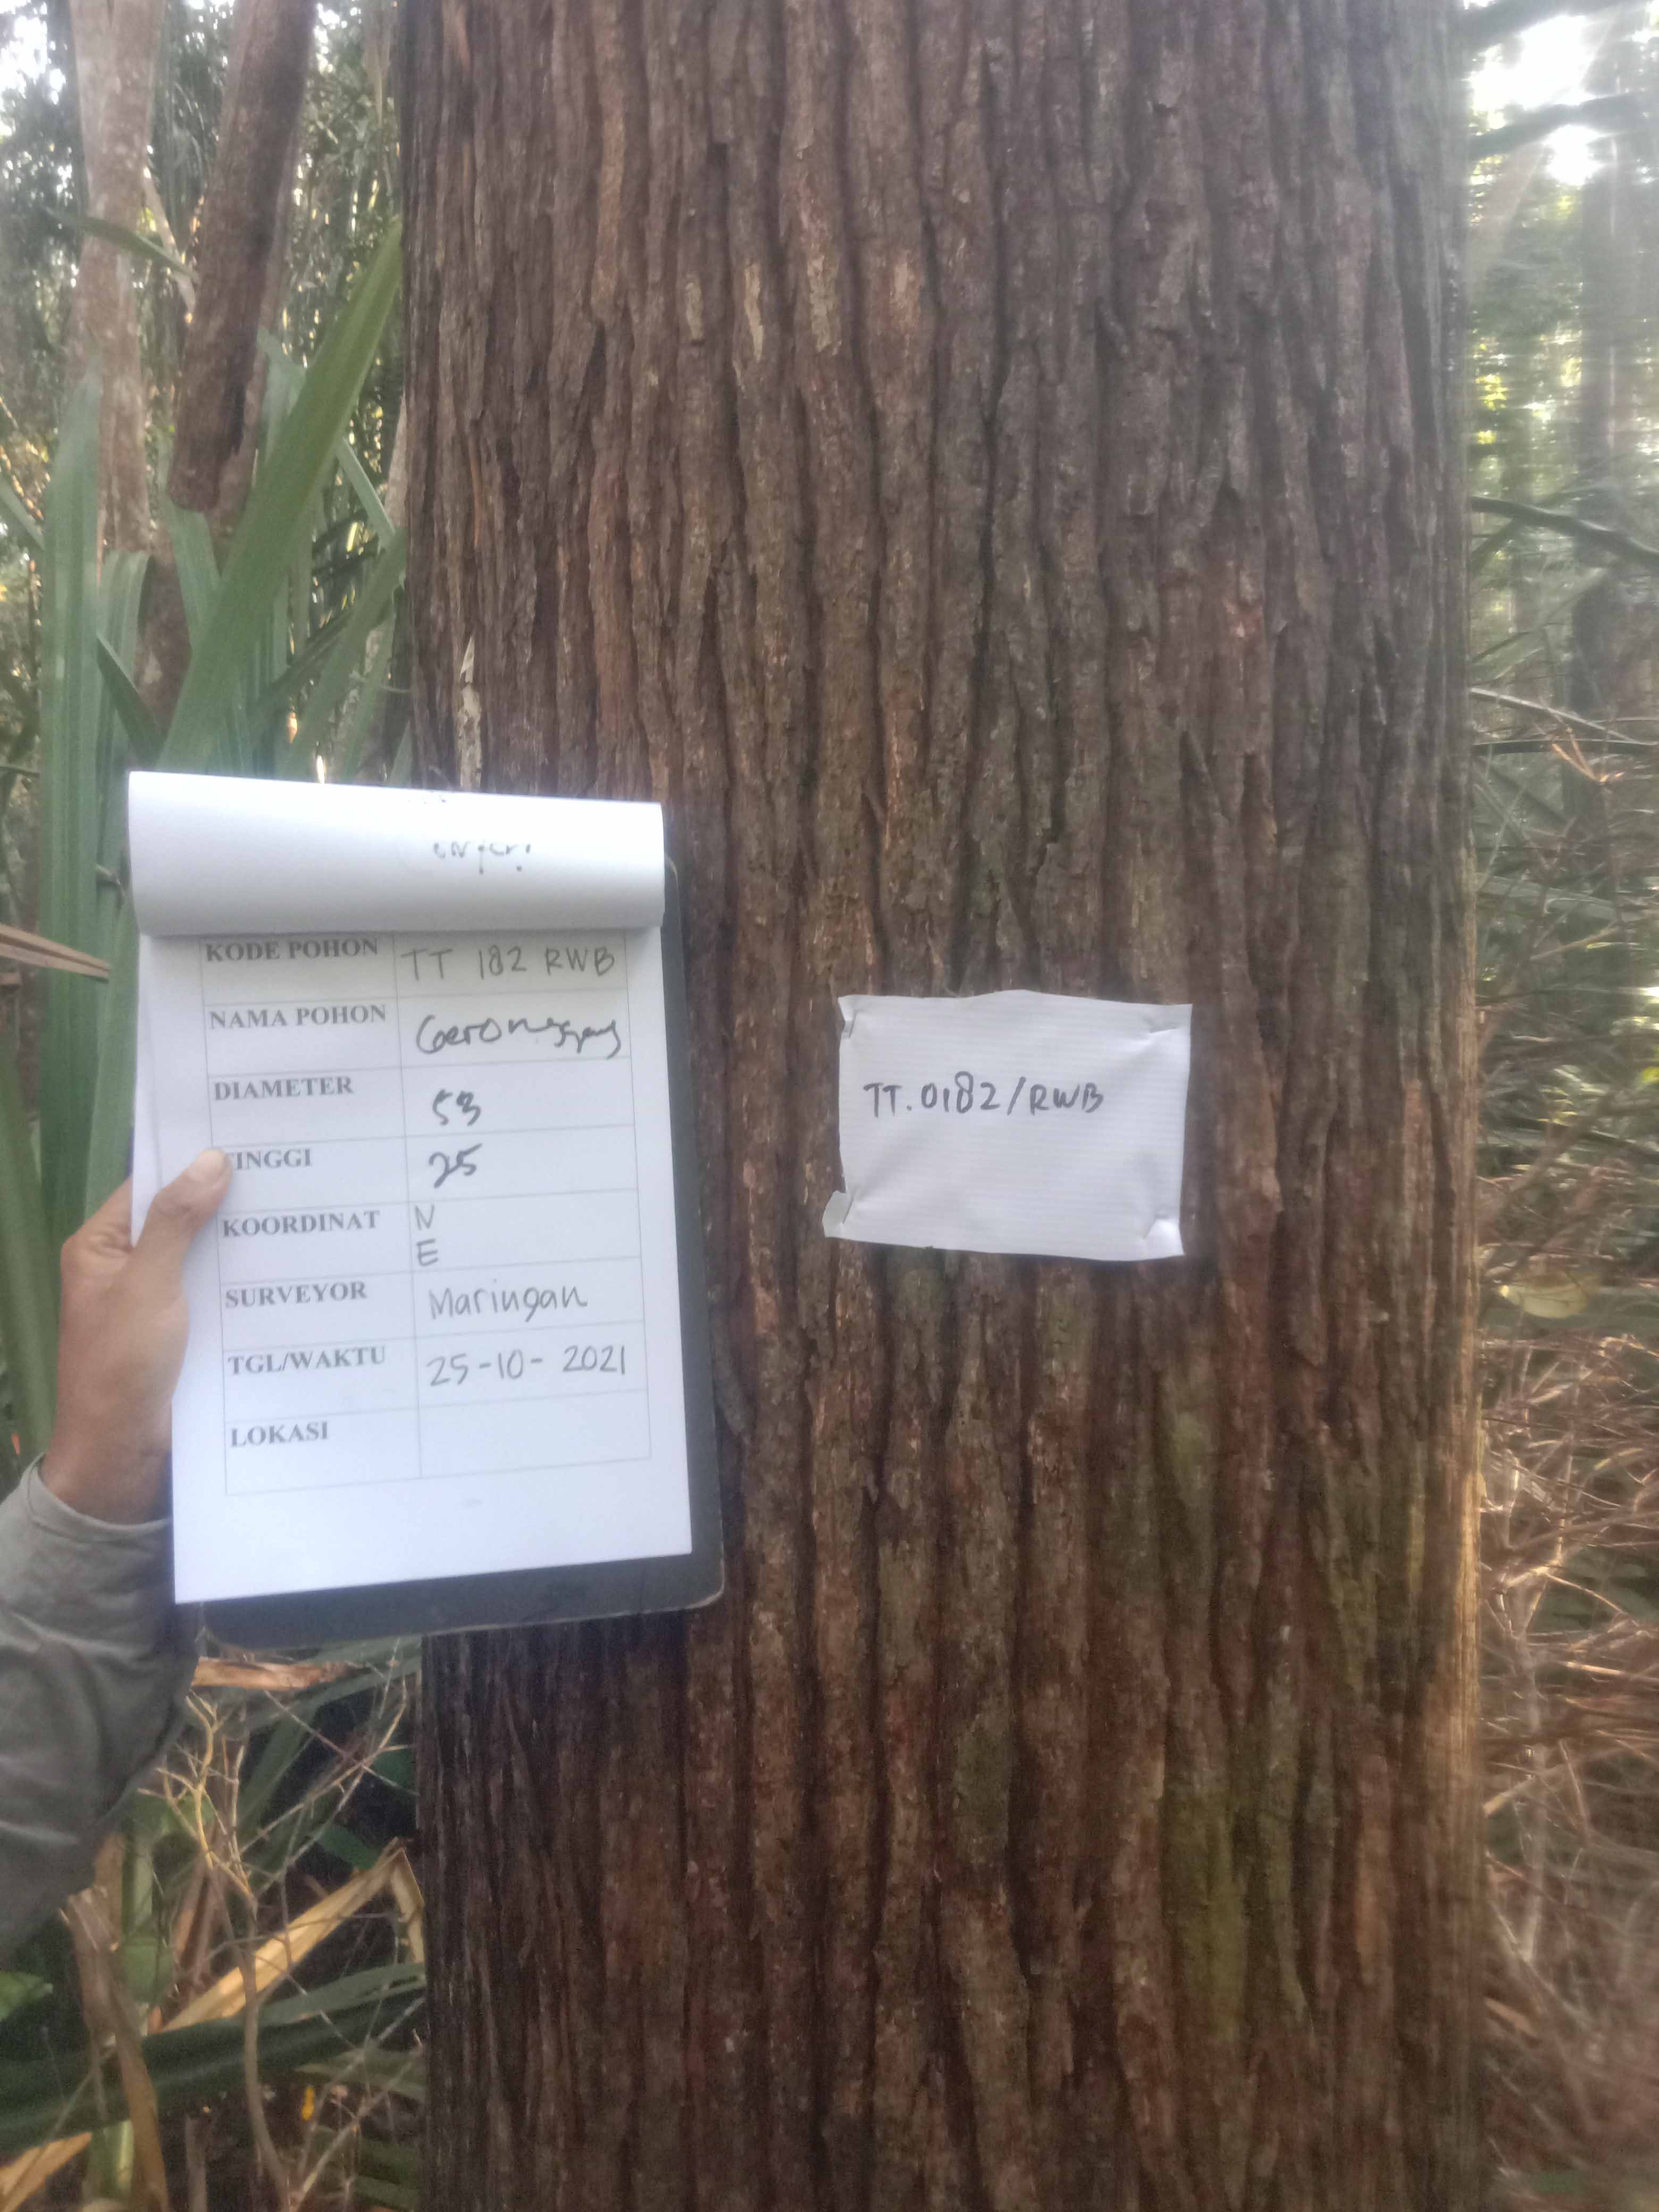 KODE POHON TT 182 RWB
NAMA POHON Geronggang
DIAMETER 53
TINGGI 25
KOORDINAT N
E
SURVEYOR Maringan
TGL/WAKTU 25-10-2021
LOKASI
TT.0182/RWB